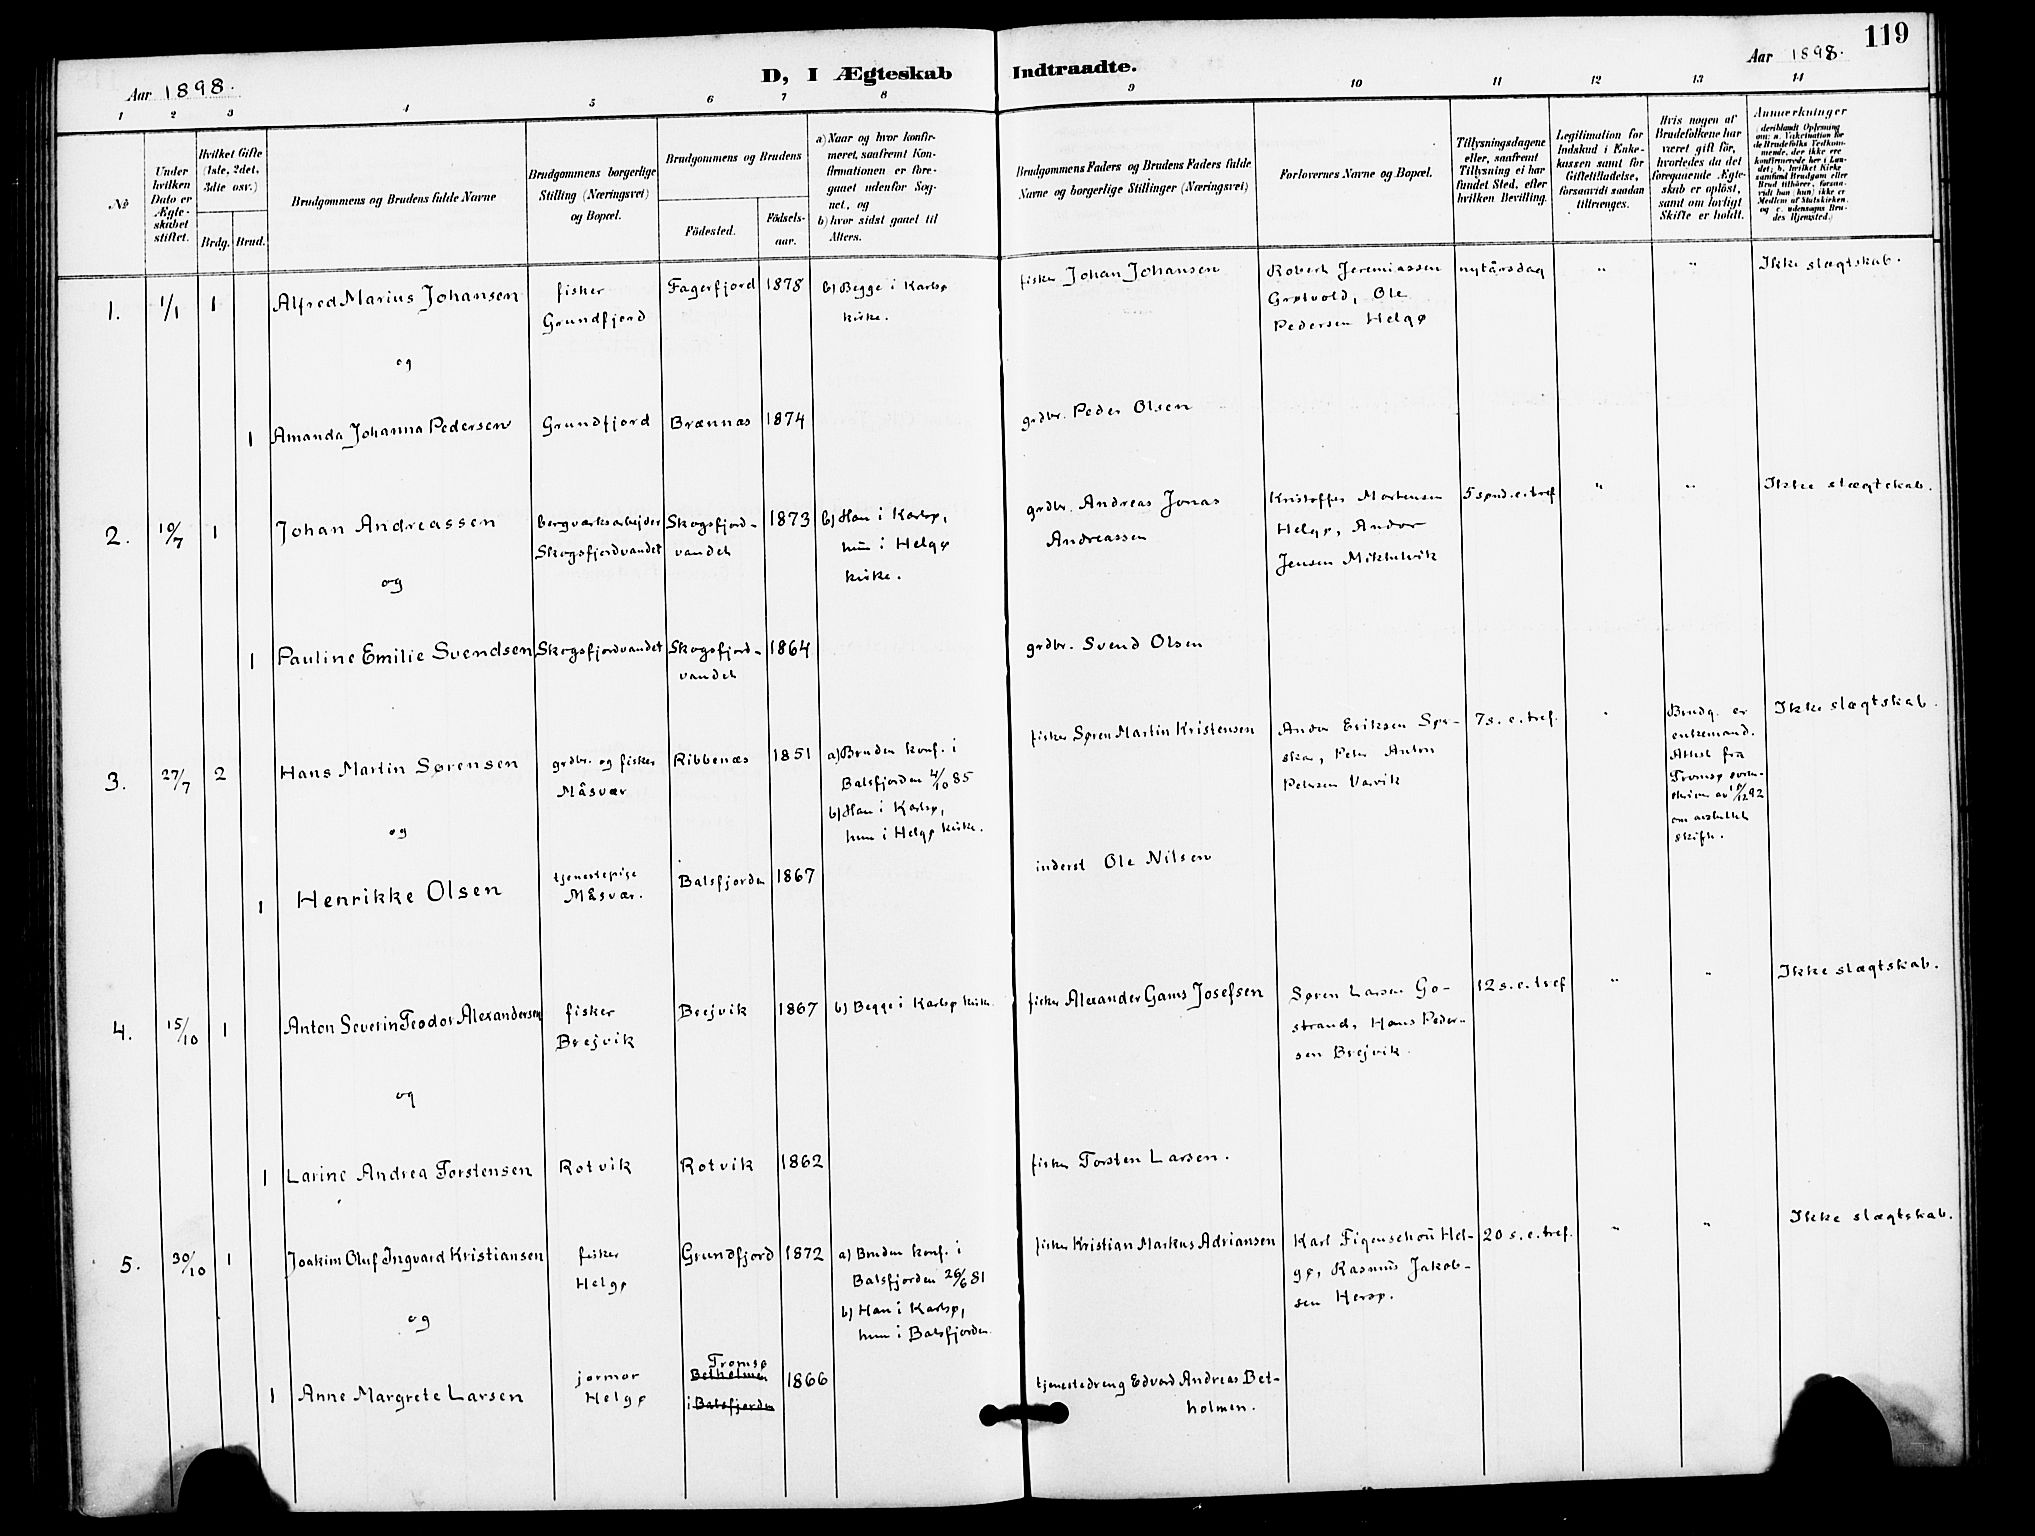 119
Aar 1898.
D, I Ægteskab Indtraadte.
Aar 1898.
1 2 3 4 5 6 7 8 9 10 11 12 13 14
No
Under hvilken Dato er Ægteskabet stiftet.
Hvilket Gifte (1ste, 2det, 3die osv.)
Brdg. Brud.
Brudgommens og Brudens fulde Navne
Brudgommens borgerlige Stilling (Næringsvei) og Bopæl.
Brudgommens og Brudens
Födested.
Födselsaar.
a) Naar og hvor konfirmeret, saafremt Konfirmationen er foregaaet udenfor Sognet, og
b) hvor sidst gaaet til Alters.
Brudgommens Faders og Brudens Faders fulde Navne og borgerlige Stillinger (Næringsvei)
Forlovernes Navne og Bopæl.
Tillysningsdagene eller, saafremt Tillysning ei har fundet Sted, efter hvilken Bevilling.
Legitimation for Indskud i Enkekassen samt for Giftetilladelse, forsaavidt saadan tiltrænges.
Hvis nogen af Brudefolkene har været gift för, hvorledes da det foregaaende Ægteskab er oplöst, samt om lovligt Skifte er holdt.
Anmærkninger
(deriblandt Oplysning om: a. Vakcination for de Brudefolks Vedkommende, der ikke ere konfirmerede her i Landet; b. hvilket Kirkesamfund Brudgom eller Brud tilhører, forsaavidt han (hun) ikke er Medlem af Statskirken, og c. udensogns Brudes Hjemsted.)
1. 1/1 1 Alfred Marius Johansen
fisker
Grundfjord
Fagerfjord 1878
b) Begge i Karlsø
kirke.
fisker Johan Johansen
Robert Jeremiassen
Grøtvold, Ole
Pedersen Helgø
nytårsdag " " Ikke slægtskab.
og
1 Amanda Johanna Pedersen Grundfjord Brænnæs 1874
grdbr. Peder Olsen
2. 10/7 1 Johan Andreassen
bergværksarbejder
Skogsfjordvandet
Skogsfjord-
vandet
1873
b) Han i Karlsø,
hun i Helgø
kirke.
grdbr. Andreas Jonas
Andreassen
Kristoffer Mortensen
Helgø, Andor
Jensen Mikkelvik
5 sønd. e. tref " " Ikke slægtskab.
og
1 Pauline Emilie Svendsen Skogsfjordvandet Skogsfjord-
vandet
1864
grdbr. Svend Olsen
3. 27/7 2 Hans Martin Sørensen
grdbr. og fisker
Måsvær
Ribbenæs 1851
a) Bruden konf. i
Balsfjorden 4/10 85
b) Han i Karlsø,
hun i Helgø kirke.
fisker Søren Martin Kristensen
Andor Eriksen Sør-
skar, Peter Anton
Petersen
7 s. e. tref. "
Brudg. er
enkemand.
Attest fra
Tromsø soren-
skriver av /12 92
om avsluttet
skifte.
Ikke slægtskab.
og
1 Henrikke Olsen
tjenestepige
Måsvær.
Balsfjorden 1867
inderst Ole Nilsen
4. 15/10 1 Anton Severin Teodor Alexandersen
fisker
Brejvik
Brejvik 1867
b) Begge i Karlsø kirke
fisker Alexander Gams Josefsen
Søren Larsen Go-
strand, Hans Peder-
sen Brejvik.
12 s. e. tref " " Ikke slægtskab.
og
1 Larine Andrea Torstensen Rotvik Rotvik 1862
fisker Torsten Larsen.
5. 30/10 1 Joakim Oluf Ingvard Kristiansen
fisker
Helgø
Grundfjord 1872
a) Bruden konf. i
Balsfjorden 26/6 81
b) Han i Karlsø,
hun i Balsfjorden.
fisker Kristian Markus Adriansen
Karl Figenschou Hel-
gø, Rasmus Jakob-
sen Hersø.
20 s. e. tref. " " Ikke slægtskab.
og
1 Anne Margrete Larsen
jormor
Helgø
Tromsø
Betholmen
i Balsfjorden
1866
tjenestedreng Edvard Andreas Bet-
holmen.